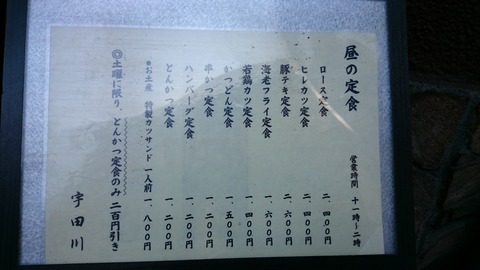 昼の定食
営業時間 十一時～二時
ロース定食 二、四〇〇円
ヒレカツ定食 二、四〇〇円
豚テキ定食 二、六〇〇円
海老フライ定食 一、六〇〇円
若鶏カツ定食 一、四〇〇円
かつどん定食 一、五〇〇円
串かつ定食 一、二〇〇円
ハンバーグ定食 一、二〇〇円
とんかつ定食 一、二〇〇円
●お土産 特製カツサンド 一人前 一、八〇〇円
◎土曜に限り、とんかつ定食のみ 二百円引き
宇田川